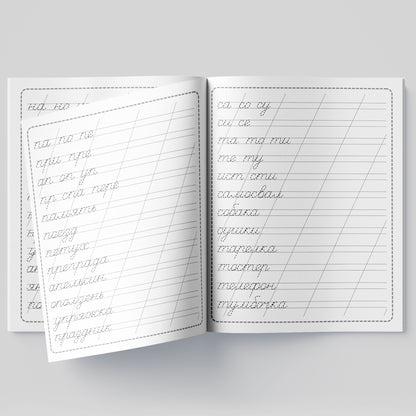 на но
па по пе
при пре
ап оп уп
пр спа пере
память
поезд
петух
преграда
апельсин
оползень
упряжка
праздник
са со су
си се
та то ти
те ту
ист сти
самосвал
собака
сушки
тарелка
тостер
телефон
тумбочка